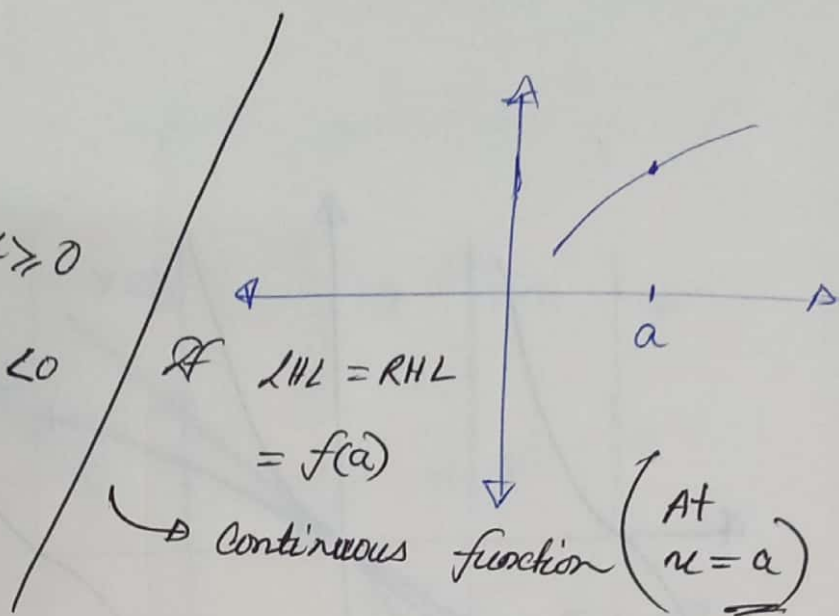 ≥ 0
<0
a
If LHL = RHL
= f(a)
→ Continuous function (At x = a)